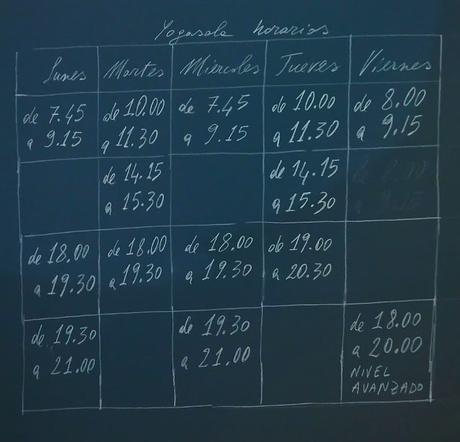 Yogasala horarios
Lunes Martes Miercoles Jueves Viernes
de 7.45 de 10.00 de 7.45 de 10.00 de 8.00
a 9.15 a 11.30 a 9.15 a 11.30 a 9.15
de 14.15 de 14.15
a 15.30 a 15.30
de 18.00 de 18.00 de 18.00 de 19.00
a 19.30 a 19.30 a 19.30 a 20.30
de 19.30 de 19.30 de 18.00
a 21.00 a 21.00 a 20.00
NIVEL
AVANZADO